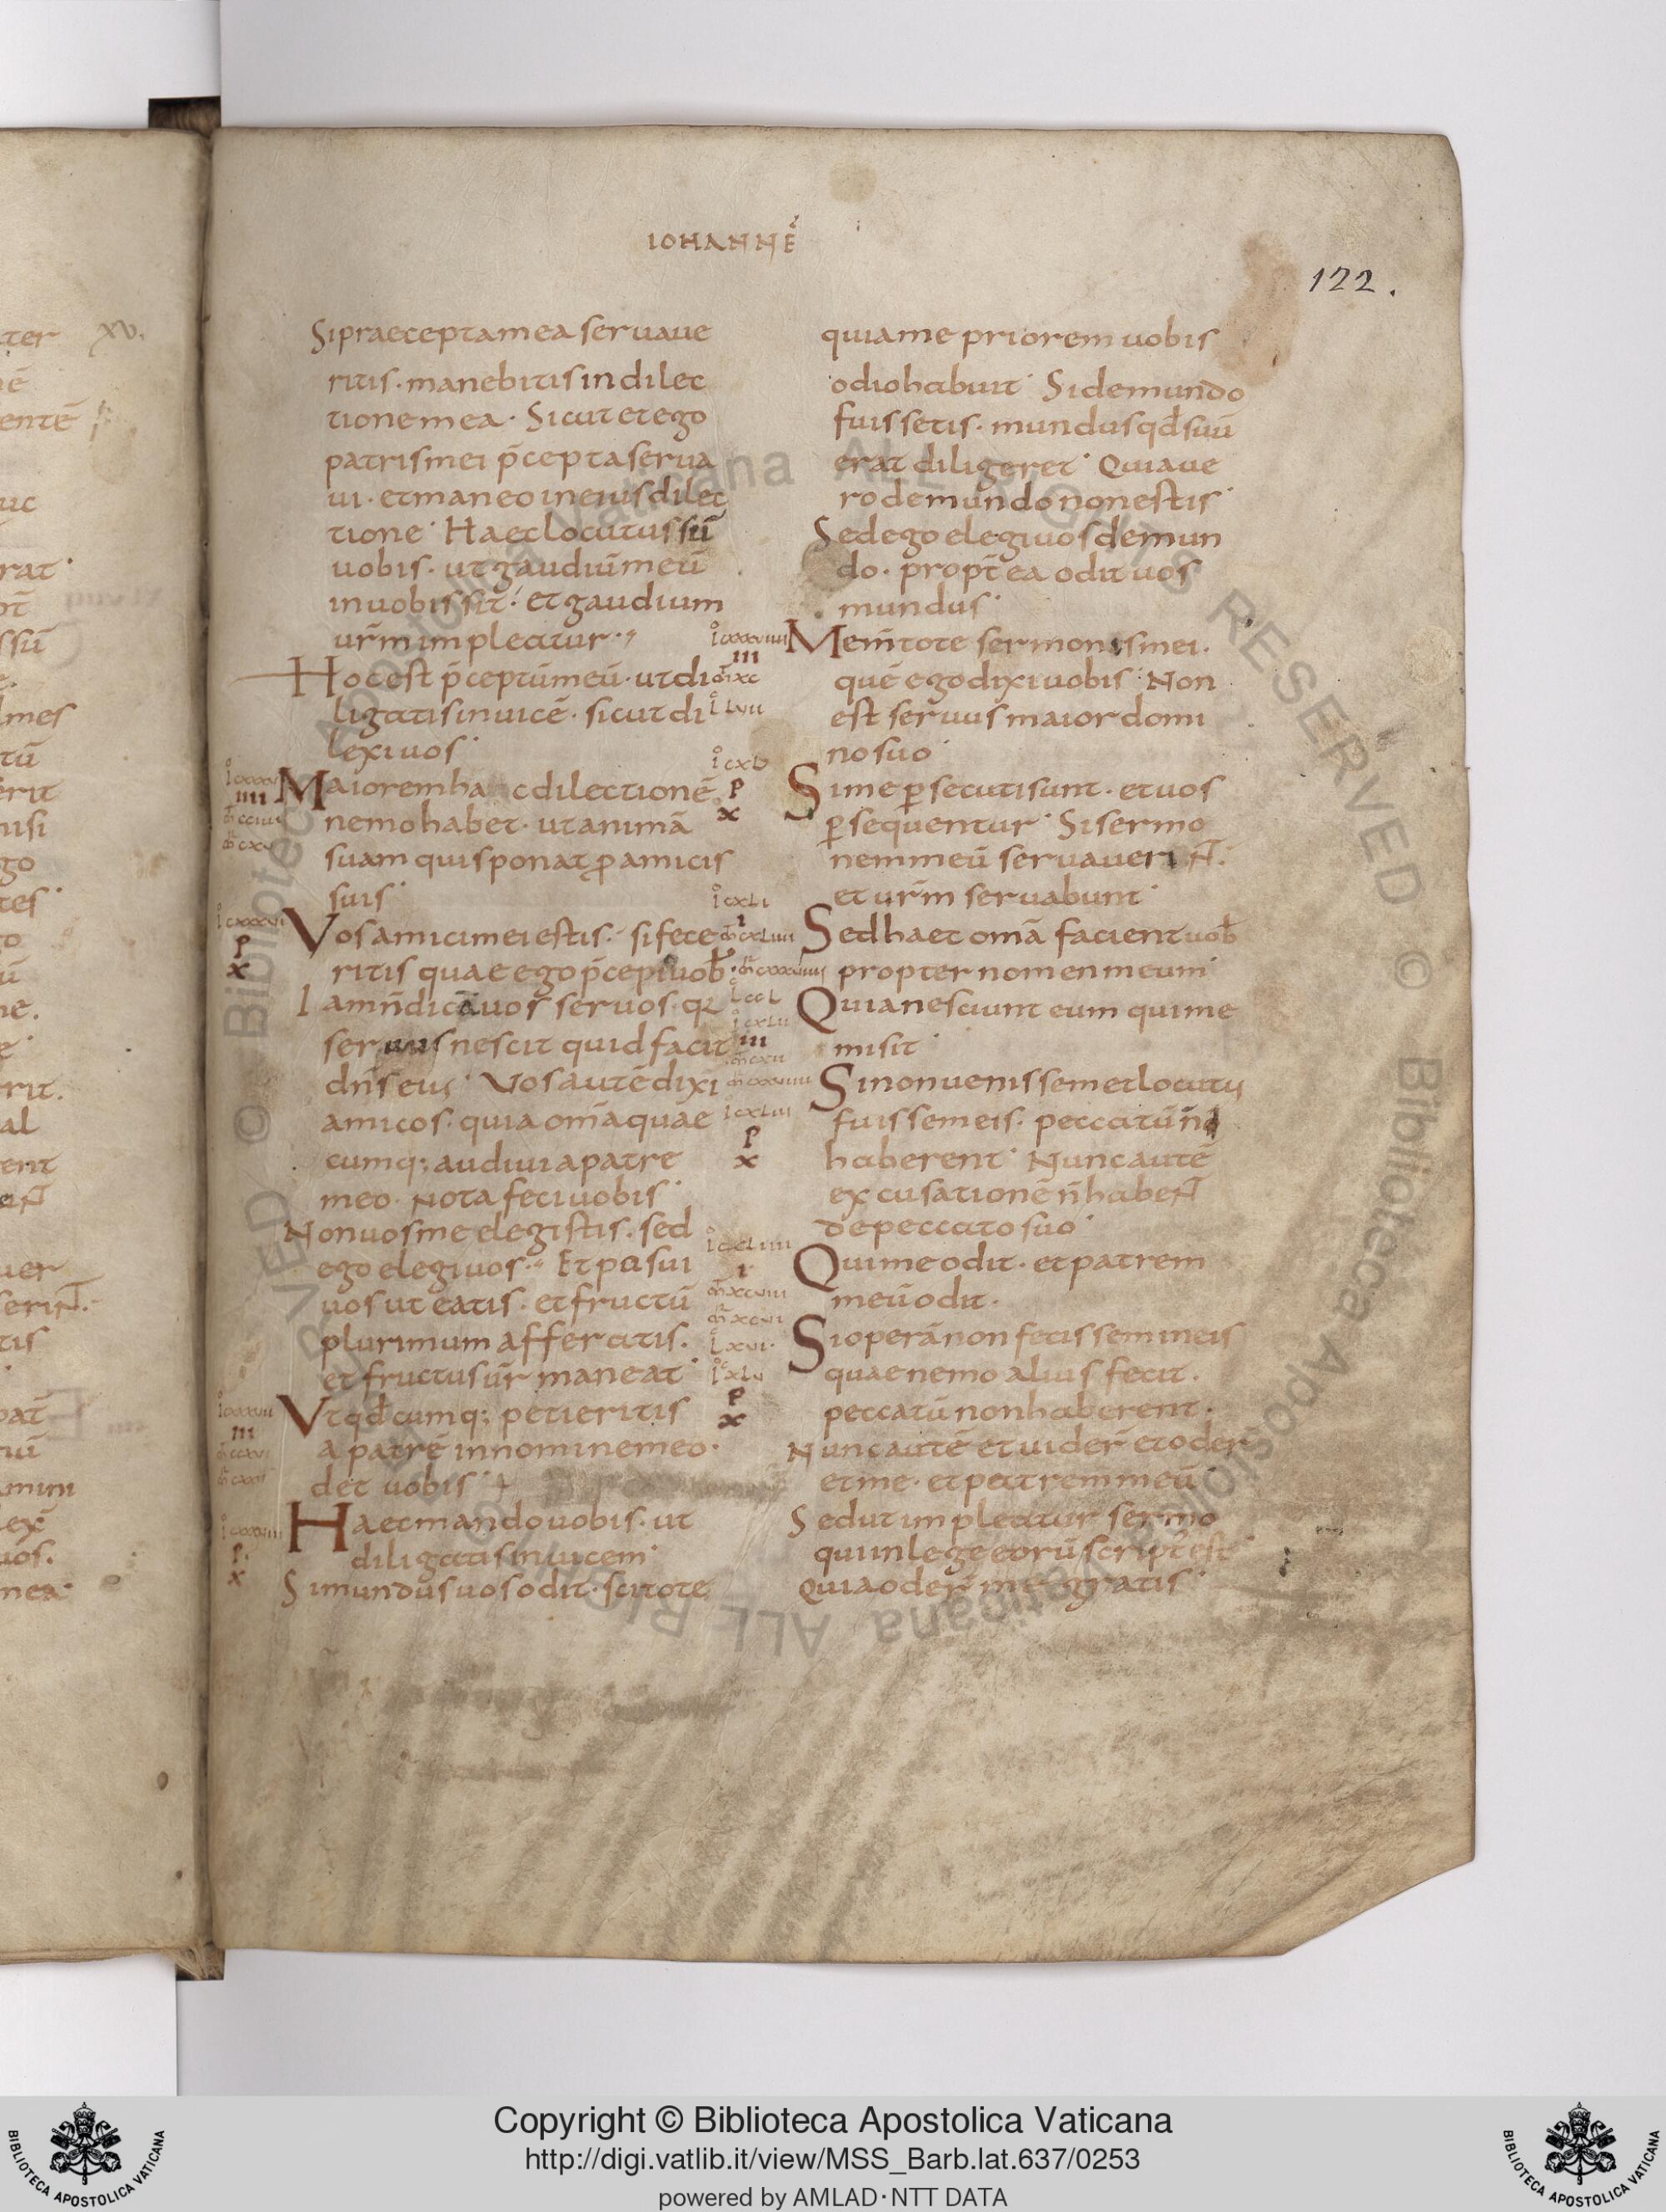 IOHANNĒ
122.
Si praecepta mea servaue
ritis · manebitis in dilec
tione mea · Sicut et ego
patris mei p̄cepta serua
ui · et maneo in eius dilec
tione · Haec locutus sū
uobis · ut gaudiū meū
in uobis sit · et gaudium
ur̄m impleatur ·
Hoc est p̄ceptū meū · ut di
ligatis inuicē · sicut di
lexi uos ·
Maiorem hanc dilectionē
nemo habet · ut animā
suam quis ponat ꝓ amicis
suis ·
Vos amici mei estis · si fece
ritis quae ego p̄cepi uob̄ ·
Iam n̄ dicā uos seruos · qr
seruus nescit quid facit
dn̄s eius · Vos autē dixi
amicos · quia om̄a quae
cumq; audiui a patre
meo · Nota feci uobis ·
Non uos me elegistis · sed
ego elegi uos · Et posui
uos ut eatis · et fructū
plurimum afferatis ·
et fructus ur̄ maneat ·
Vt qd̄cumq; petieritis
a patrē in nomine meo ·
det uobis ·
Haec mando uobis · ut
diligatis inuicem ·
Si mundus uos odit · scitote
quia me priorem uobis
odio habuit · Si de mundo
fuissetis · mundus qd̄ suū
erat diligeret · Quia ue
ro de mundo non estis ·
Sed ego elegi uos de mun
do · propt̄ ea odit uos
mundus ·
Mem̄tote sermonis mei ·
quē ego dixi uobis · Non
est seruus maior domi
no suo ·
Si me ꝑsecuti sunt · et uos
ꝑsequentur · Si sermo
nem meū seruauerīt ·
et ur̄m seruabunt ·
Sed haec om̄ā facient uob̄
propter nomen meum ·
Quia nesciunt eum qui me
misit ·
Si non uenissem et locutus
fuissem eis · peccatū n̄
haberent · Nunc autē
excusationē n̄ habeNT
de peccato suo ·
Qui me odit · et patrem
meū odit ·
Si operā non fecissem in eis
quae nemo alius fecit ·
peccatū non haberent ·
Nunc autē et uider̄ et oder̄
et me · et patrem meū
Sed ut impleatur sermo
qui in lege eorū script̄ est
Quia oder̄ me gratis ·
Copyright © Biblioteca Apostolica Vaticana
http://digi.vatlib.it/view/MSS_Barb.lat.637/0253
powered by AMLAD·NTT DATA
BIBLIOTECA APOSTOLICA VATICANA
BIBLIOTECA APOSTOLICA VATICANA